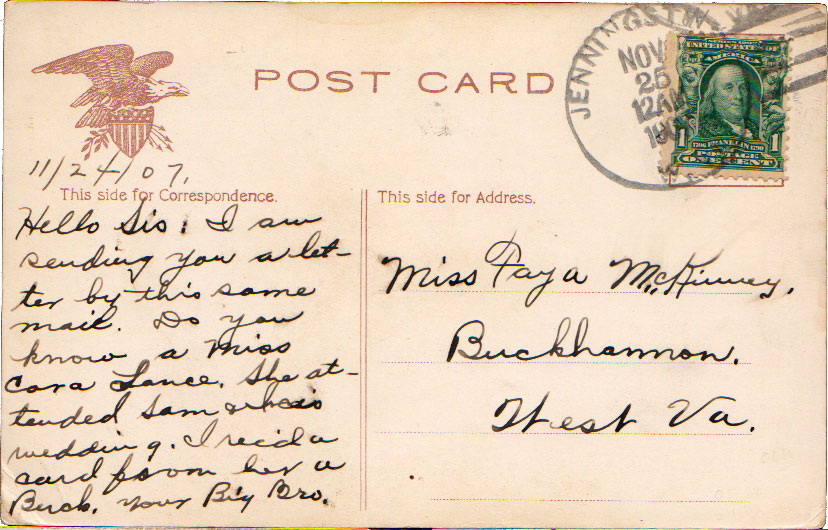 POST CARD
JENNINGSTON, W.
NOV
25
12AM
190
SERIES 1902
UNITED STATES OF
AMERICA
1 1
1706 FRANKLIN 1790
POSTAGE
ONE CENT
11/24/07.
This side for Correspondence.
Hello Sis: I am
sending you a let-
ter by this same
mail. Do you
know a Miss
Cora Lance. She at-
tended Sam &
wedding. I rec'd a
card from her a
Buck. Your Big Bro.
This side for Address.
Miss Faya McKinney,
Buckhannon.
West Va.